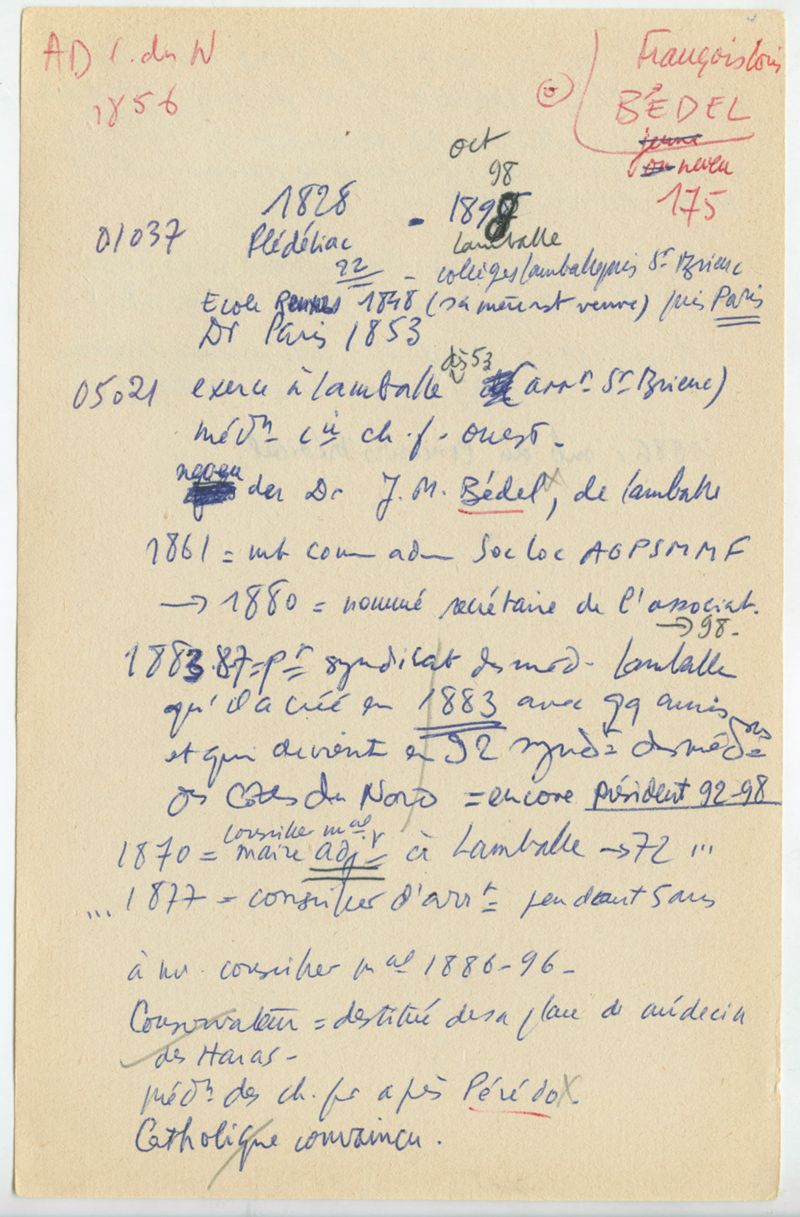 AD C. du N
1856
François Louis
BÉDEL
jeune
ou neveu
175
oct
98
1828 - 1898
01037 Plédéliac Lamballe
22 - collèges Lamballe puis St Brieuc
Ecole Rennes 1848 (sa mère est veuve) puis Paris
Dr Paris 1853
dès 53
05021 exerce à Lamballe (arrt St Brieuc)
médn cie ch. f. ouest -
neveu du Dr J. M. Bédel, de Lamballe
1861 = mb comm adm Soc loc AGPSMMF
→ 1880 = nommé secrétaire de l'associat.
→ 98 -
1883.87 = pt syndicat des méd - Lamballe
qu'il a créé en 1883 avec qq amis
et qui devient en 92 syndt des médns
des Côtes du Nord = encore président 92-98
conseiller mal
1870 = maire adjt à Lamballe → 72 ...
... 1877 = conseiller d'arrt = pendant 5 ans
à nv. conseiller mal 1886-96 -
Conservateur = destitué de sa place de médecin
des Haras -
médn des ch. fer après Pérédo X
Catholique convaincu.